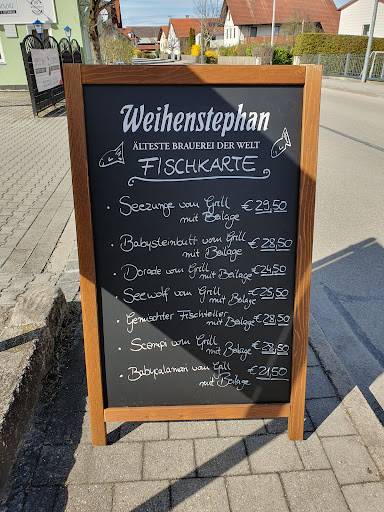 Weihenstephan
ÄLTESTE BRAUEREI DER WELT
FISCHKARTE
· Seezunge vom Grill € 29,50
mit Beilage
· Babysteinbutt vom Grill € 28,50
mit Beilage
· Dorade vom Grill mit Beilage € 24,50
· Seewolf vom Grill mit Beilage € 25,50
· Gemischter Fischteller mit Beilage € 28,50
· Scampi vom Grill mit Beilage € 28,50
· Babycalamari vom Grill € 21,50
mit Beilage